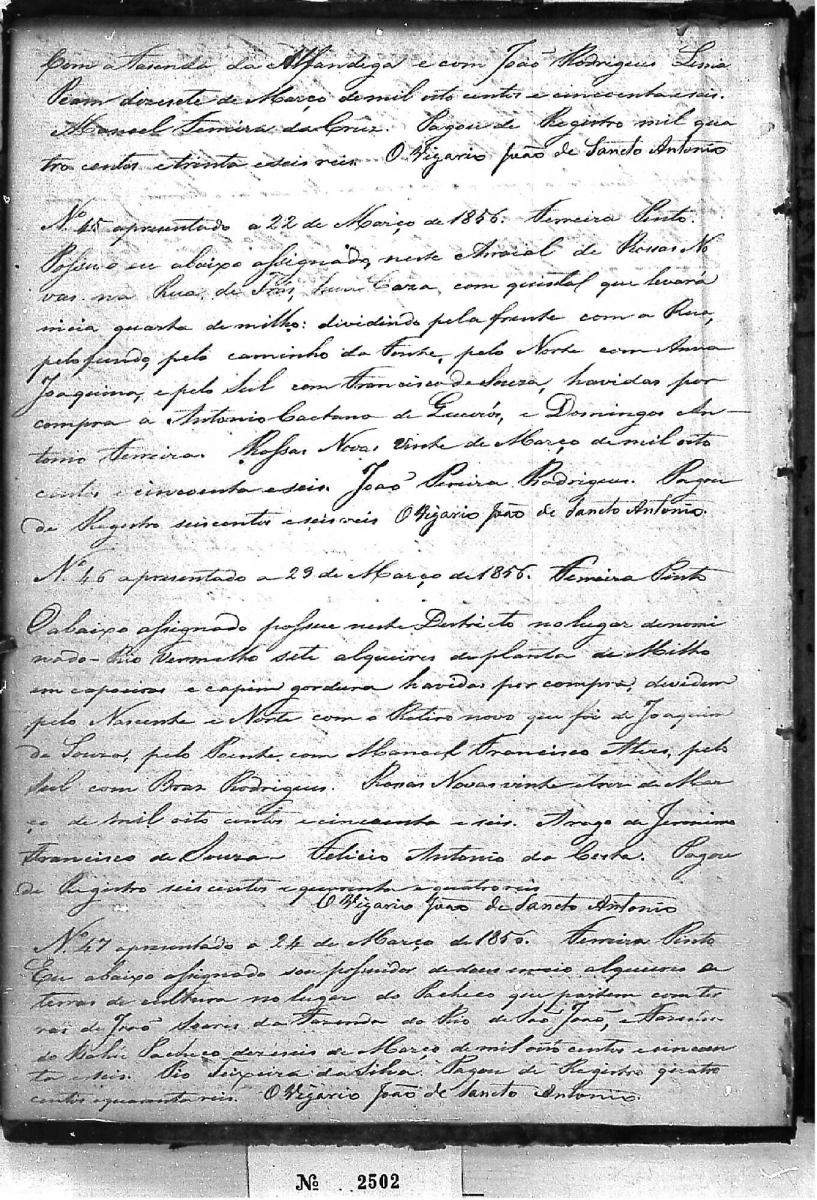 Com a Fasenda da Alfandega e com João Rodrigues Lima
Peam dezesete de Março de mil oito centos e cincoenta e seis.
Manoel Ferreira da Cruz. Pagou de Registro mil qua
tro centos e trenta e seis reis. O Vigario João de Sancto Antonio
Nº 45 apresentado a 22 de Março de 1856. Ferreira Pinto.
Possuo eu abaixo assignado, neste Arraial de Rossas No
vas na Rua de Trás, huma Caza, com quintal que levará
meia quarta de milho: dividindo pela frente com a Rua,
pelo fundo, pelo caminho da Fonte, pelo Norte com Anna
Joaquina, e pelo Sul com Francisco de Souza, havidas por
compra a Antonio Caetano de Queirós, e Domingos An-
tonio Ferreira. Rossas Novas vinte de Março de mil oito
centos e cincoenta e seis. João Pereira Rodrigues. Pagou
de Registro seis centos e seis reis O Vigario João de Sancto Antonio.
Nº 46 apresentado a 23 de Março de 1856. Ferreira Pinto
O abaixo assignado possue neste Destricto no lugar denomi
nado - Rio Vermelho sete alqueires de planta de Milho
em capoeiras e capim gordura havidas por compra, dividem
pelo Nascente e Norte com o Retiro novo que foi de Joaquim
de Souza, pelo Poente, com Manoel Francisco Alves, pelo
Sul com Bras Rodrigues. Rossas Novas vinte e tres de Mar
ço de mil oito centos e cincoenta e seis. Arogo de Jeronimo
Francisco de Souza - Felicio Antonio da Costa. Pagou
de Registro seis centos e quarenta e quatro reis
O Vigario João de Sancto Antonio
Nº 47 apresentado a 24 de Março de 1856. Ferreira Pinto
Eu abaixo assignado sou possuidor de dous e meio alqueires de
terras de cultura no lugar do Pacheco que partem com ter
ras de João Soares da Fazenda do Rio de São João, e Fasenda
do Pacheco dezeseis de Março de mil oito centos e cincoen
ta e seis. Pio Teixeira da Silva. Pagou de Registro quatro
centos e quarenta reis. O Vigario João de Sancto Antonio.
Nº 2502